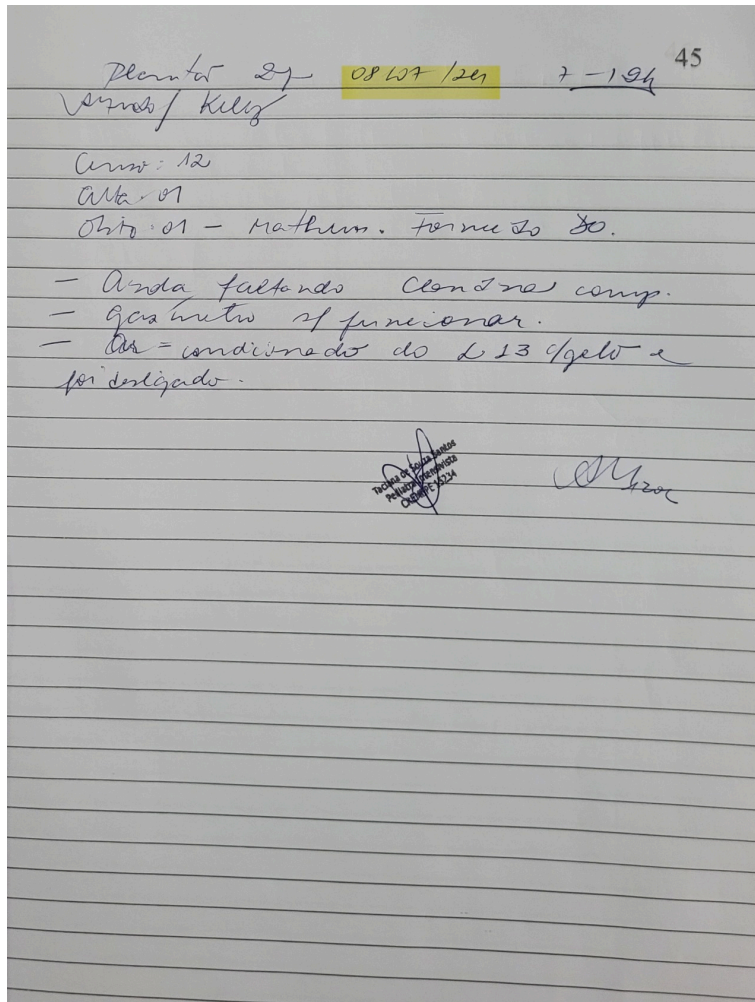 45
Plantão 2ª 08/07/24 7-19h
/ Kelly
Censo: 12
Alta: 01
Óbito: 01 - Matheus. Fornecido DO.
- Ainda faltando comp.
- gasímetro s/ funcionar.
- Ar-condicionado do L 13 c/gelo e
foi desligado.
Taciana de Souza Santos
Pediatra Intensivista